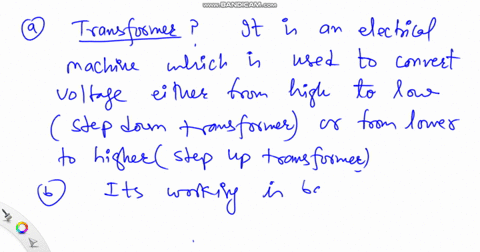 WWW.BANDICAM.COM
(a) Transformer? It is an electrical
machine which is used to convert
voltage either from high to low
(step down transformer) or from lower
to higher (step up transformer)
(b) Its working is ba